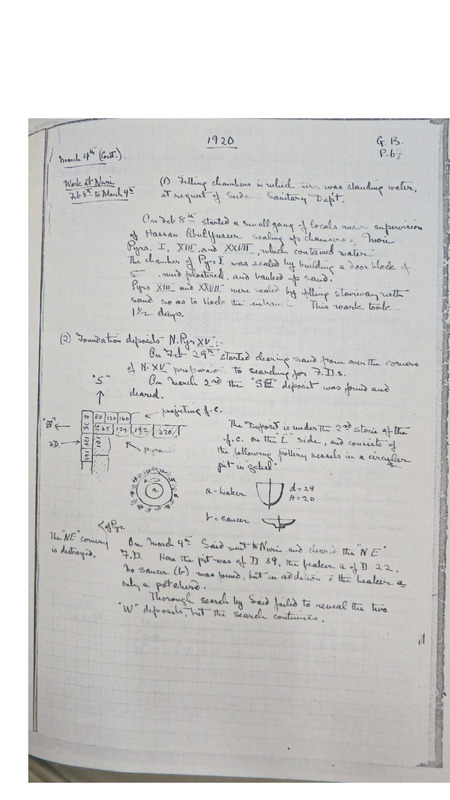 1920
G.B.
P. 6
March 4th (Cont.).
Work at Nuri
Feb 8th to March 4th
(1) Filling chambers in which was standing water,
at request of Sudan Sanitary Dept.
On Feb 8th started a small gang of locals under supervision
of Hassan sealing up chambers of Nuri
Pyrs. I, XIII and XXVII, which contained water.
The chamber of Pyr I was sealed by building a door block of
mud plastered, and banked up sand.
Pyrs XIII and XXVII were sealed by filling stairway with
sand so as to block the entrance. This work took
1½ days.
(2) Foundation deposits N. Pyr XV:-
On Feb 29th started clearing sand from over the corners
of N. XV preparation to searching for F.D.s.
On March 2nd the "SE" deposit was found and
cleared.
"S"
projecting f.c.
F.D.
The Deposit is under the 2nd stone of the
f.c. on the side, and consists of
the following pottery vessels in a circular
pit in gebel
a = beaker
d = 24
H = 20
b = saucer
of Pyr.
The "NE" corner
is destroyed.
On March 4th Said went to Nuri and cleared the "NE"
F.D. Here the pit was of D 39, the beaker a of D 22.
No saucer (b) was found, but in addition to the beaker a
only a potsherd.
Thorough search by Said failed to reveal the two
"W" deposits, but the search continues.